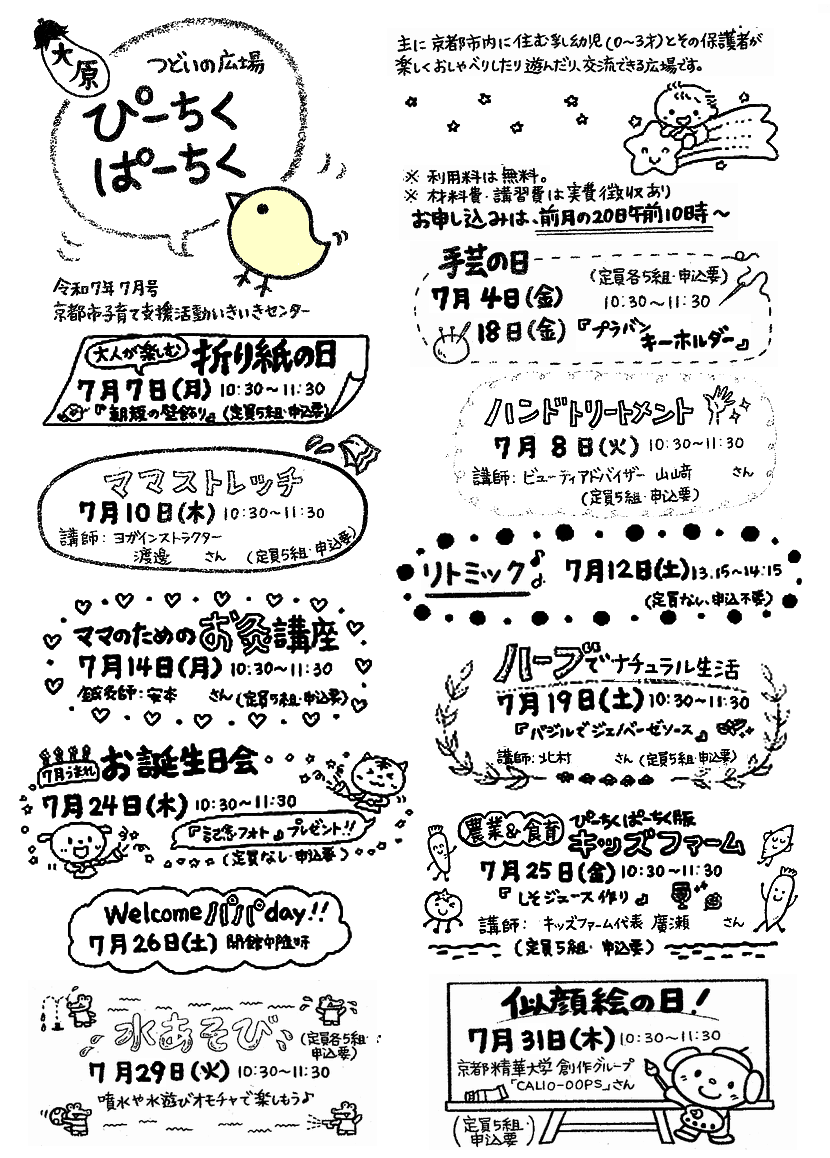 大原
つどいの広場
ぴーちく
ぱーちく
令和7年7月号
京都市子育て支援活動いきいきセンター
主に京都市内に住む乳幼児(0~3才)とその保護者が
楽しくおしゃべりしたり遊んだり、交流できる広場です。
※ 利用料は無料。
※ 材料費・講習費は実費徴収あり
お申し込みは、前月の20日午前10時~
大人が楽しむ 折り紙の日
7月7日(月) 10:30~11:30
『朝顔の壁飾り』(定員5組・申込要)
ママストレッチ
7月10日(木) 10:30~11:30
講師:ヨガインストラクター
渡邉 さん (定員5組・申込要)
ママのためのお灸講座
7月14日(月) 10:30~11:30
鍼灸師:安本 さん(定員5組・申込要)
7月うまれ お誕生日会
7月24日(木) 10:30~11:30
『記念フォト』プレゼント!!
(定員なし・申込要)
Welcomeパパday!!
7月26日(土) 開館中随時
水あそび
(定員各5組・
申込要)
7月29日(火) 10:30~11:30
噴水や水遊びオモチャで楽しもう♪
手芸の日
(定員各5組・申込要)
7月4日(金) 10:30~11:30
18日(金)『プラバン
キーホルダー』
ハンドトリートメント
7月8日(火) 10:30~11:30
講師:ビューティアドバイザー 山﨑 さん
(定員5組・申込要)
リトミック♪ 7月12日(土)13:15~14:15
(定員なし、申込不要)
ハーブでナチュラル生活
7月19日(土) 10:30~11:30
『バジルでジェノベーゼソース』
講師:北村 さん(定員5組・申込要)
農業&食育 ぴーちくぱーちく版
キッズファーム
7月25日(金) 10:30~11:30
『しそジュース作り』
講師: キッズファーム代表 廣瀬 さん
(定員5組・申込要)
似顔絵の日!
7月31日(木) 10:30~11:30
京都精華大学 創作グループ
「CALIO-OOPS」さん
(定員5組・
申込要)